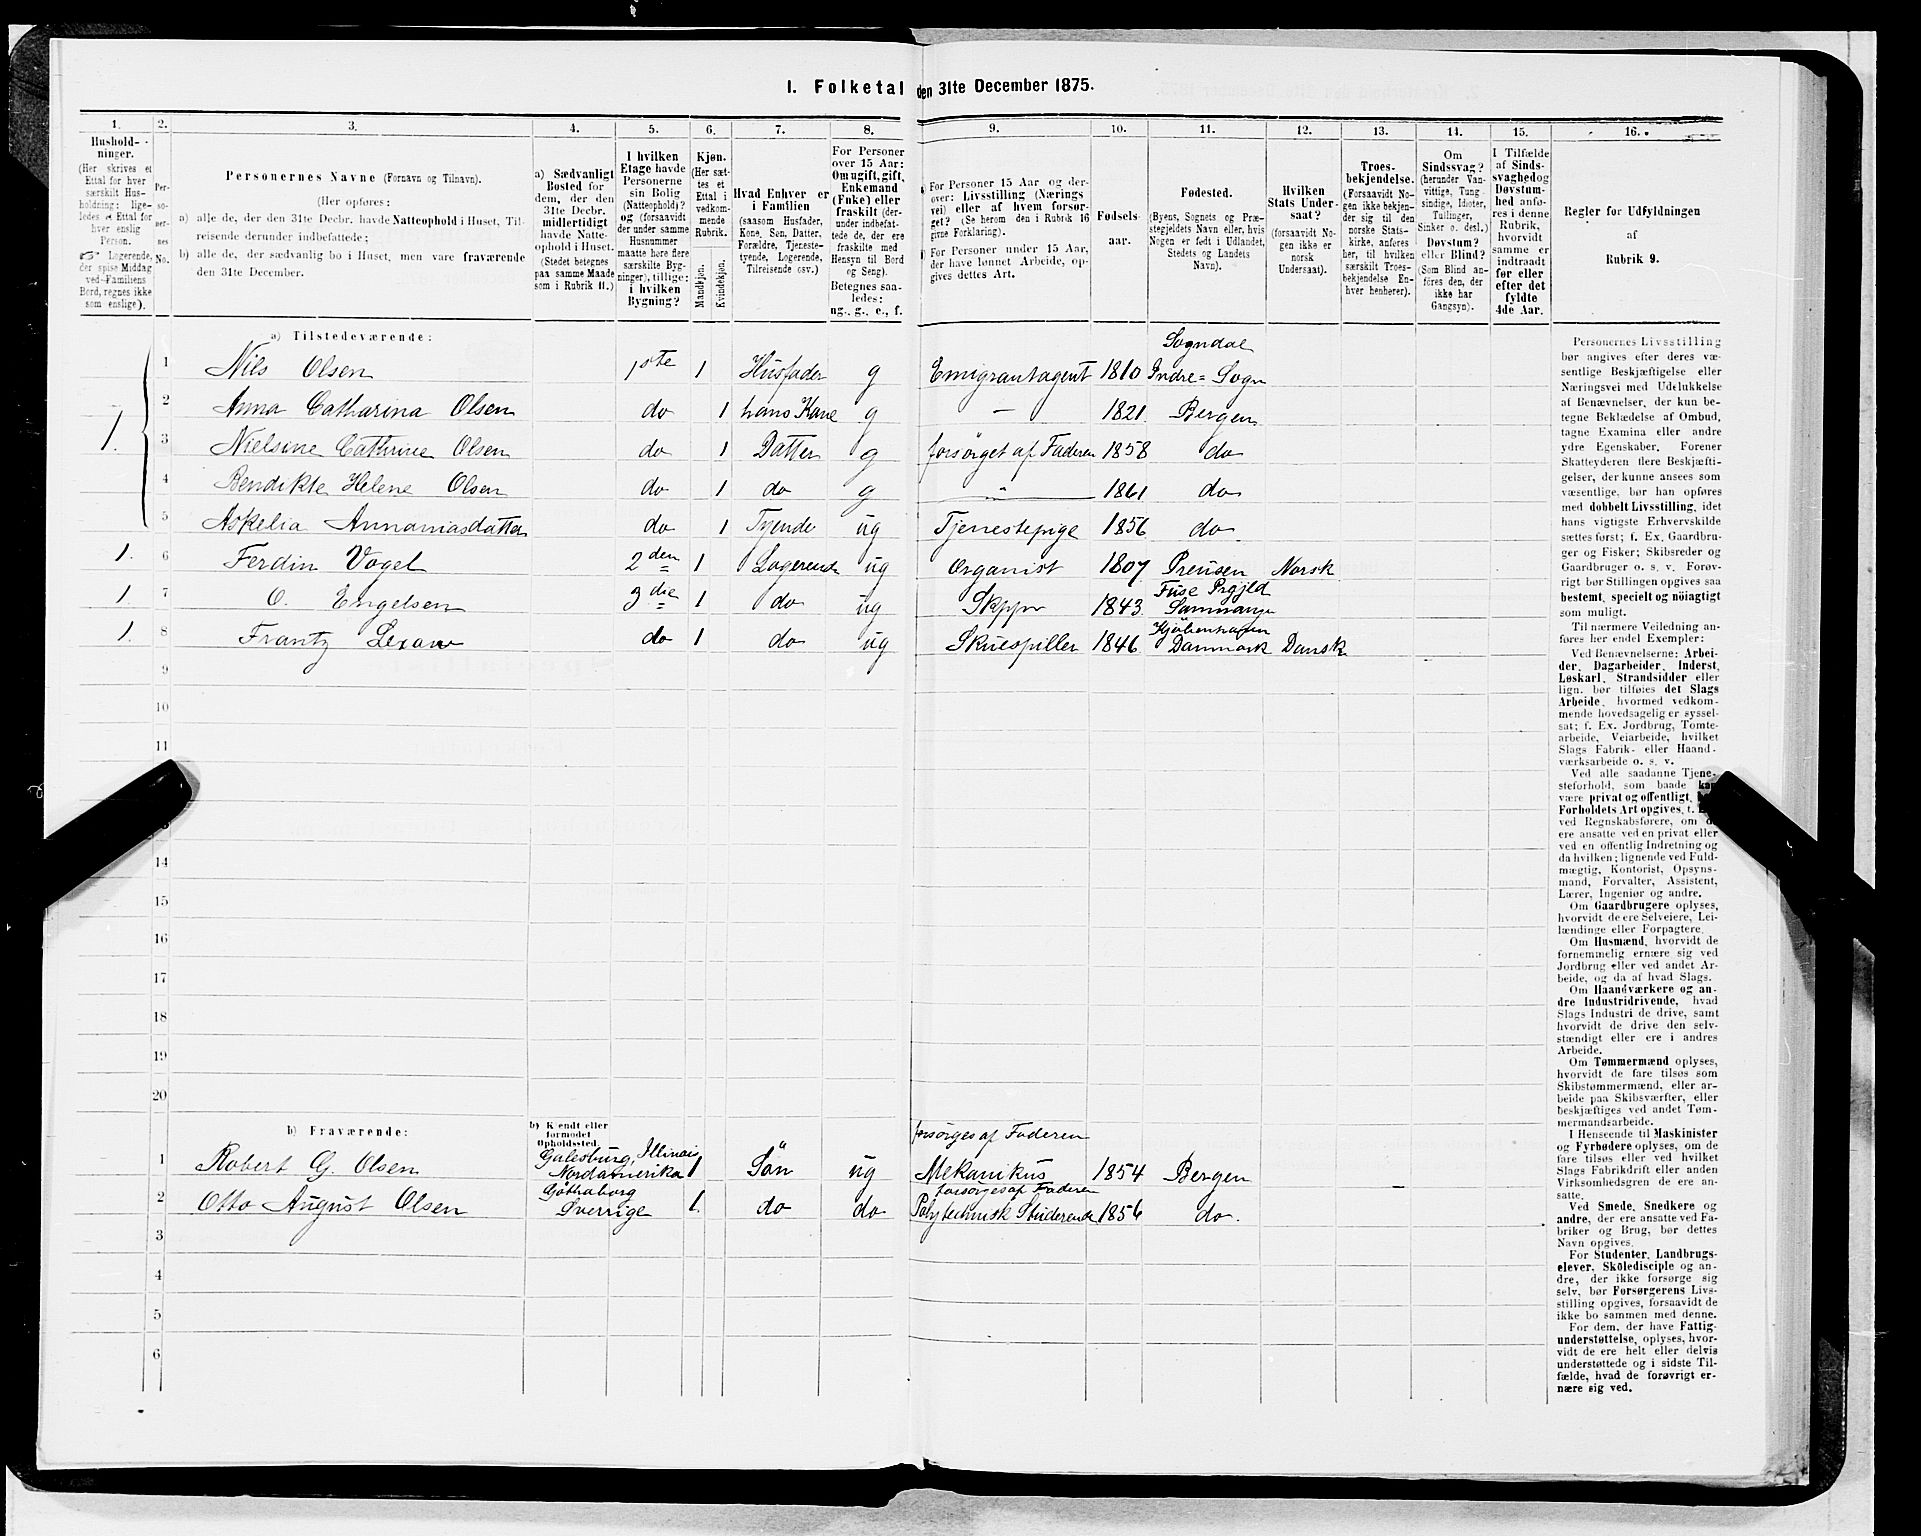 I. Folketal den 31te December 1875.
1. 2. 3. 4. 5. 6. 7. 8. 9. 10. 11. 12. 13. 14. 15. 16.
Hushold-
ninger.
(Her skrives et
Ettal for hver
særskilt Hus-
holdning; lige-
ledes et Ettal for
hver enslig
Person.
Logerende,
der spise Middag
ved Familiens
Bord, regnes ikke
som enslige).
Per-
so-
ner-
nes
No.
Personernes Navne (Fornavn og Tilnavn).
(Her opføres:
a) alle de, der den 31te Decbr. havde Natteophold i Huset, Til-
reisende derunder indbefattede;
b) alle de, der sædvanlig bo i Huset, men vare fraværende
den 31te December.
a) Sædvanligt
Bosted for
dem, der den
31te Decbr.
midlertidigt
havde Natte-
ophold i Huset.
(Stedet betegnes
paa samme Maade
som i Rubrik 11.)
I hvilken
Etage havde
Personerne
sin Bolig
(Natteophold)?
og (forsaavidt
der under samme
Husnummer
maatte høre flere
særskilte Byg-
ninger), tillige:
i hvilken
Bygning?
Kjøn.
(Her sæt-
tes et
Ettal i
vedkom-
mende
Rubrik.
Mandkjøn.
Kvindekjøn.
Hvad Enhver er
i Familien
(saasom Husfader,
Kone, Søn, Datter,
Forældre, Tjeneste-
tyende, Logerende,
Tilreisende osv.)
For Personer
over 15 Aar:
Om ugift, gift,
Enkemand
(Enke) eller
fraskilt (der-
under indbefat-
tede de, der ere
fraskilte med
Hensyn til Bord
og Seng).
Betegnes saa-
ledes:
ug., g., e., f.
For Personer 15 Aar og der-
over: Livsstilling (Nærings-
vei) eller af hvem forsør-
get? (Se herom den i Rubrik 16
givne Forklaring).
For Personer under 15 Aar,
der have lønnet Arbeide, op-
gives dettes Art.
Fødsels-
aar.
Fødested.
(Byens, Sognets og Præ-
stegjeldets Navn eller, hvis
Nogen er født i Udlandet,
Stedets og Landets
Navn).
Hvilken
Stats Under-
saat?
(forsaavidt No-
gen ikke er
norsk
Undersaat).
Troes-
bekjendelse.
(Forsaavidt No-
gen ikke bekjen-
der sig til den
norske Stats-
kirke, anføres
her, til hvilken
særskilt Troes-
bekjendelse En-
hver henhører).
Om
Sindssvag?
(herunder Van-
vittige, Tung-
sindige, Idioter,
Tullinger,
Sinker o. desl.)
Døvstum?
eller Blind?
(Som Blind an-
føres den, der
ikke har
Gangsyn).
I Tilfælde
af Sinds-
svaghed og
Døvstum-
hed anfø-
res i denne
Rubrik,
hvorvidt
samme er
indtraadt
før eller
efter det
fyldte
4de Aar.
Regler for Udfyldningen
af
Rubrik 9.
a) Tilstedeværende:
Sogndal
1. 1 Nils Olsen 1ste 1 Husfader g Emigrantagent 1810 Indre= Sogn
2 Anna Catharina Olsen do 1 hans Kone g — 1821 Bergen
3 Nielsine Cathrine Olsen do 1 Datter g forsørget af Faderen 1858 do
4 Bendikte Helene Olsen do 1 do g " 1861 do
5 Askelia Annaniasdatter do 1 Tyende ug Tjenestepige 1856 do
1. 6 Ferdin Vogel 2den 1 Logerende ug Organist 1807 Preusen Norsk
Fuse Prgjld
1. 7 O. Engelsen 3die 1 do ug Skppr 1843
Kjøbenhavn
1. 8 Frantz do 1 do ug Skuespiller 1846 Danmark Dansk
9
10
11
14
15
16
17
18
19
20
b) Fraværende:
b) Kjendt eller
formodet
Opholdssted.
forsørges af Faderen
Galesburg, Illinois
1 Robert G. Olsen Nordamerika 1 Søn ug Mekanikus 1854 Bergen
Gøthaborg forsørges af Faderen
2 Otto August Olsen Sverrige 1. do do Polytechnisk Studerende 1856 do.
3
4
5
6
Personernes Livsstilling
bør angives efter deres væ-
sentlige Beskjæftigelse eller
Næringsvei med Udelukkelse
af Benævnelser, der kun be-
tegne Beklædelse af Ombud,
tagne Examina eller andre
ydre Egenskaber. Forener
Skatteyderen flere Beskjæfti-
gelser, der kunne ansees som
væsentlige, bør han opføres
med dobbelt Livsstilling, idet
hans vigtigste Erhvervskilde
sættes først; f. Ex. Gaardbru-
ger og Fisker; Skibsreder og
Gaardbruger o. s. v. Forøv-
rigt bør Stillingen opgives saa
bestemt, specielt og nöiagtigt
som muligt.
Til nærmere Veiledning an-
føres her endel Exempler:
Ved Benævnelserne: Arbei-
der, Dagarbeider, Inderst,
Løskarl, Strandsidder eller
lign. bør tilføies det Slags
Arbeide, hvormed vedkom-
mende hovedsagelig er syssel-
sat; f. Ex. Jordbrug, Tomte-
arbeide, Veiarbeide, hvilket
Slags Fabrik- eller Haand-
værksarbeide o. s. v.
Ved alle saadanne Tjene-
steforhold, som baade kan
være privat og offentligt,
Forholdets Art opgives, t.
ved Regnskabsførere, om de
ere ansatte ved en privat eller
ved en offentlig Indretning og
da hvilken; lignende ved Fuld-
mægtig, Kontorist, Opsyns-
mand, Forvalter, Assistent,
Lærer, Ingeniør og andre.
Om Gaardbrugere oplyses,
hvorvidt de ere Selveiere, Lei-
lændinge eller Forpagtere.
Om Husmænd, hvorvidt de
fornemmelig ernære sig ved
Jordbrug eller ved andet Ar-
beide, og da af hvad Slags.
Om Haandværkere og an-
dre Industridrivende, hvad
Slags Industri de drive, samt
hvorvidt de drive den selv-
stændigt eller ere i andres
Arbeide.
Om Tømmermænd oplyses,
hvorvidt de fare tilsøs som
Skibstømmermænd, eller ar-
beide paa Skibsværfter, eller
beskjæftiges ved andet Tøm-
mermandsarbeide.
I Henseende til Maskinister
og Fyrbødere oplyses, om de
fare tilsøs eller ved hvilket
Slags Fabrikdrift eller anden
Virksomhedsgren de ere an-
satte.
Ved Smede, Snedkere og
andre, der ere ansatte ved Fa-
briker og Brug, bør dettes
Navn opgives.
For Studenter, Landbrugs-
elever, Skoledisciple og an-
dre, der ikke forsørge sig
selv, bør Forsørgerens Livs-
stilling opgives, forsaavidt de
ikke bo sammen med denne.
For dem, der have Fattig-
understøttelse, oplyses, hvor-
vidt de ere helt eller delvis
understøttede og i sidste Til-
fælde, hvad de forøvrigt er-
nære sig ved.